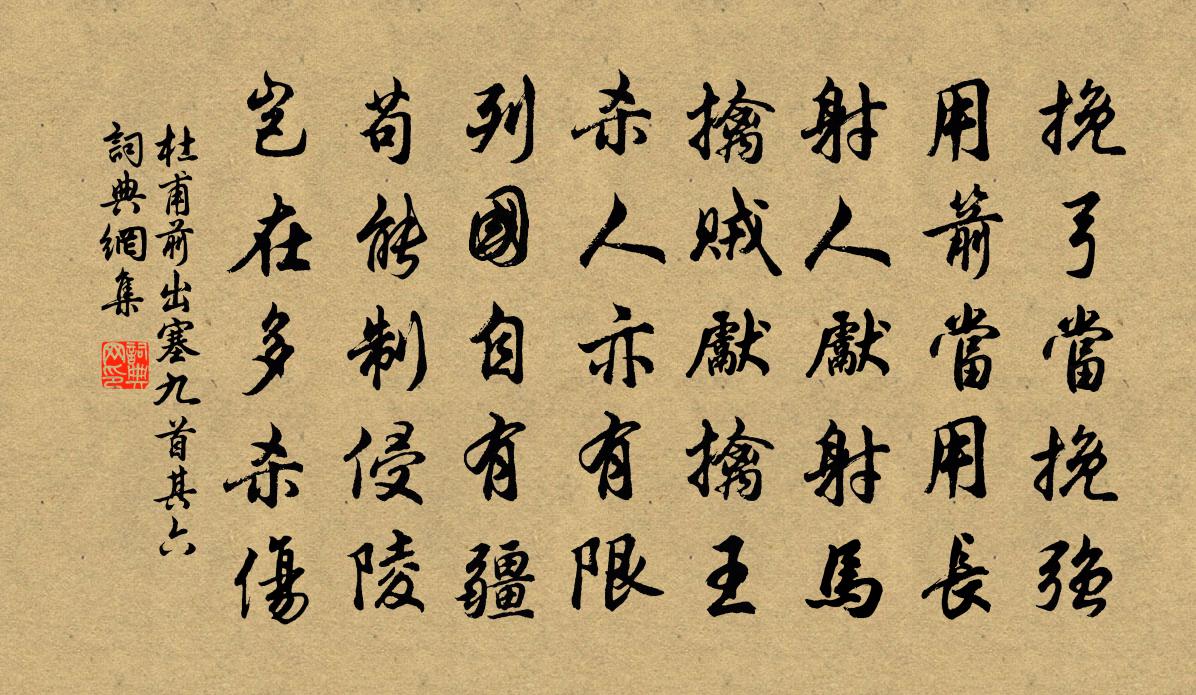 挽弓當挽强
用箭當用長
射人獻射馬
擒賊獻擒王
杀人亦有限
列國自有疆
苟能制侵陵
豈在多杀傷
杜甫前出塞九首其六
詞典網集
詞典网印